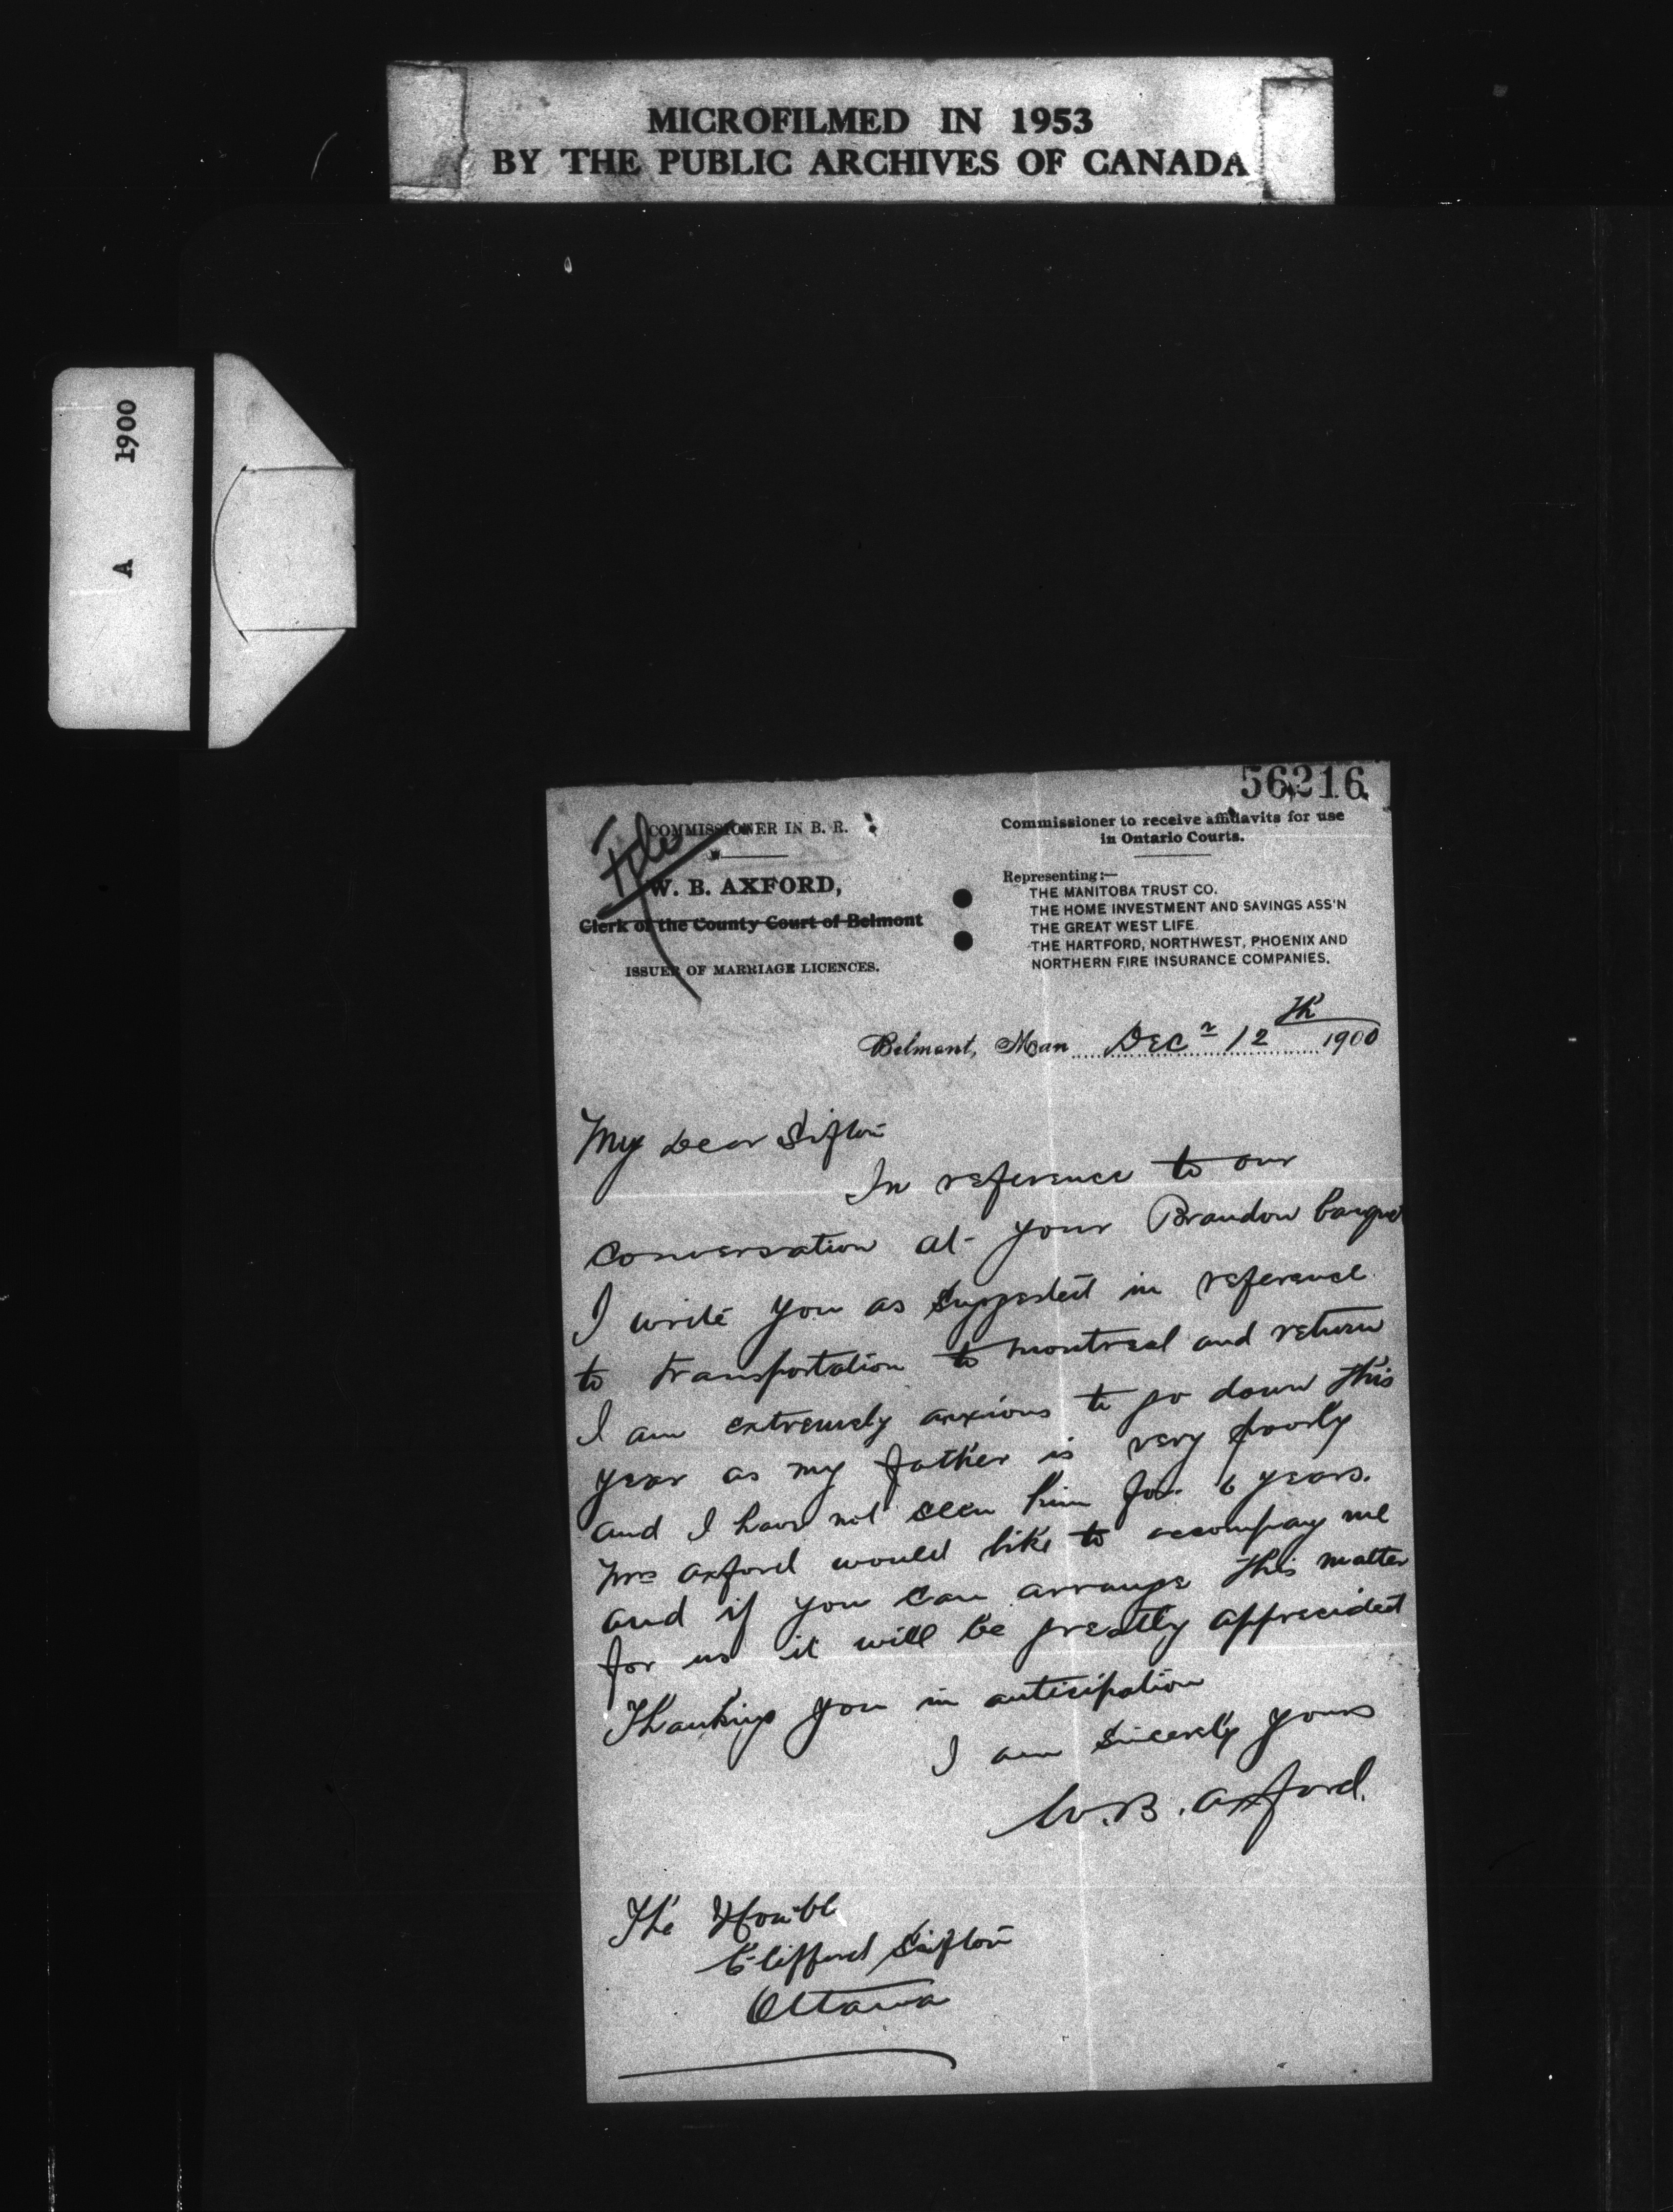 MICROFILMED IN 1953
BY THE PUBLIC ARCHIVES OF CANADA
A 1900
56216
File
COMMISSIONER IN B. R.
W. B. AXFORD,
Clerk of the County Court of Belmont
ISSUER OF MARRIAGE LICENCES.
Commissioner to receive affidavits for use
in Ontario Courts.
Representing:—
THE MANITOBA TRUST CO.
THE HOME INVESTMENT AND SAVINGS ASS'N
THE GREAT WEST LIFE.
THE HARTFORD, NORTHWEST, PHOENIX AND
NORTHERN FIRE INSURANCE COMPANIES.
Belmont, Man Decr 12th 1900
My dear Sifton
In reference to our
conversation at your Brandon banquet
I write you as suggested in reference
to transportation to montreal and return
I am extremely anxious to go down this
year as my father is very poorly
and I have not seen him for 6 years.
Mrs Axford would like to accompany me
and if you can arrange this matter
for us it will be greatly appreciated
Thanking you in anticipation
I am Sincerely yours
W. B. Axford.
The Honble
Clifford Sifton
Ottawa